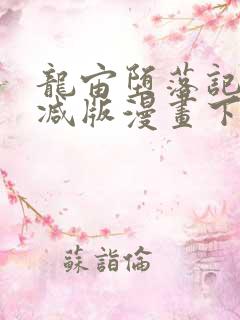 龍宙堕落記
减版漫畫下
蘇詣倫